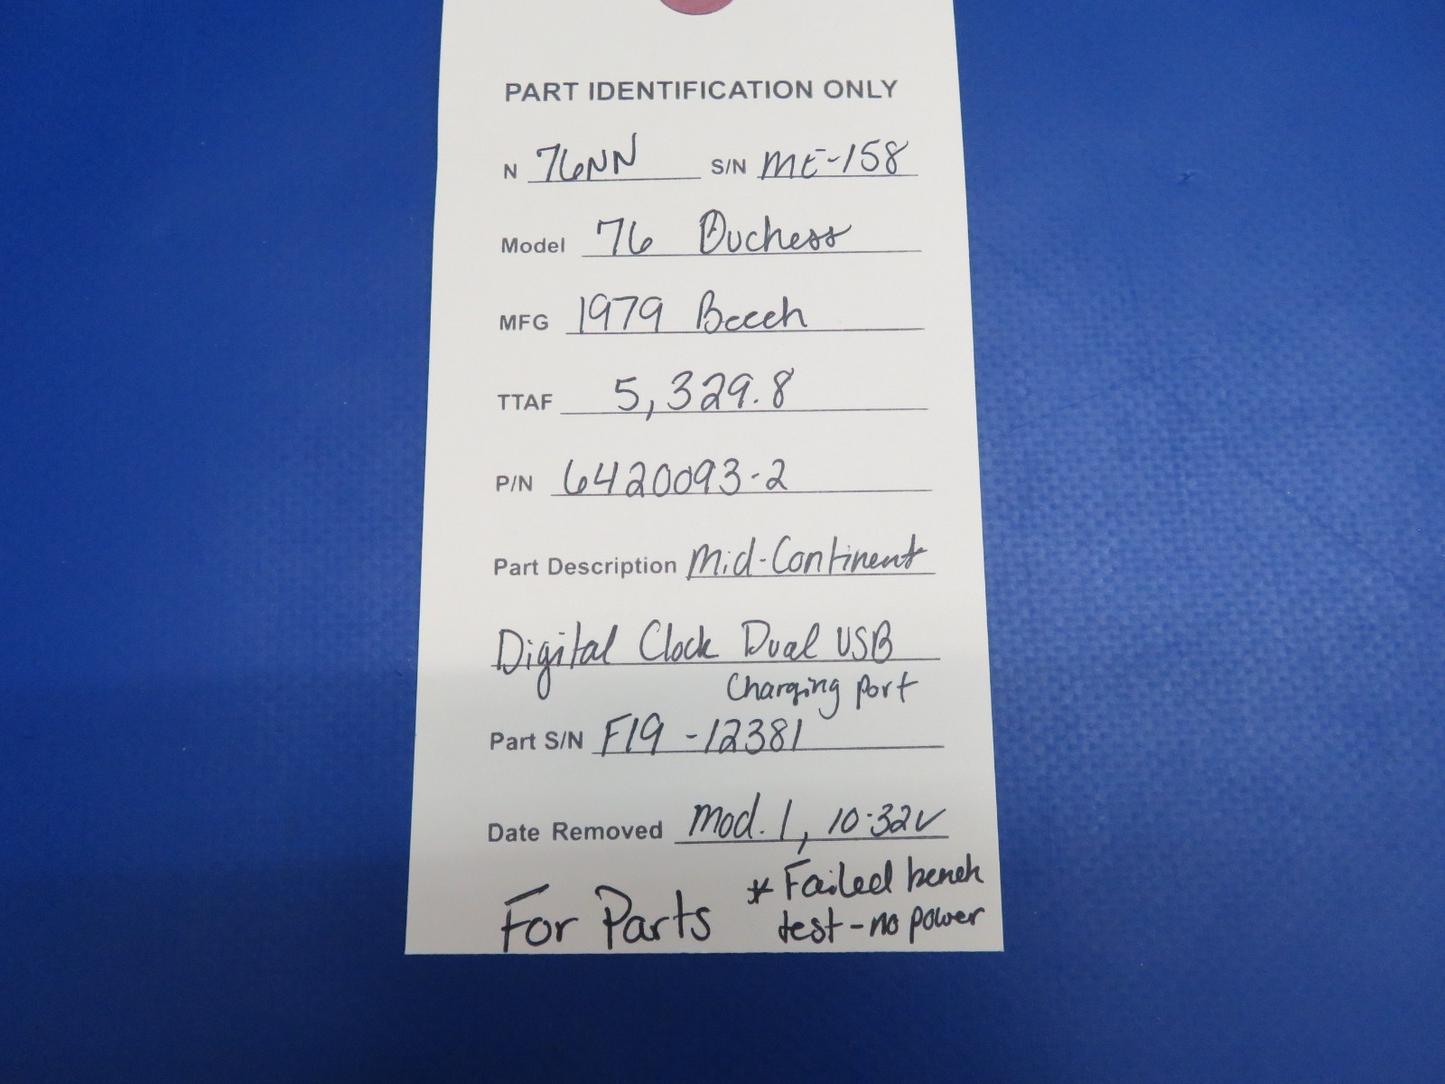 PART IDENTIFICATION ONLY
N 76NN S/N ME-158
Model 76 Duchess
MFG 1979 Beech
TTAF 5,329.8
P/N 6420093-2
Part Description Mid-Continent
Digital Clock Dual USB
Charging port
Part S/N F19-12381
Date Removed Mod. 1, 10-32V
For Parts * Failed bench
test - no power